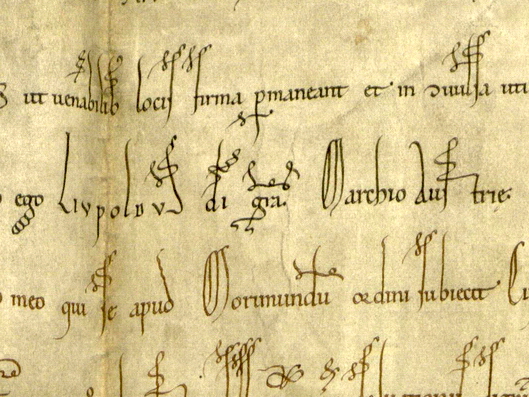 ut venabilib locis firma pmaneant et in divulsa uti
ego Liupoldus di gra Marchio Austrie
meo qui se apud Morimundu ordini subiecit